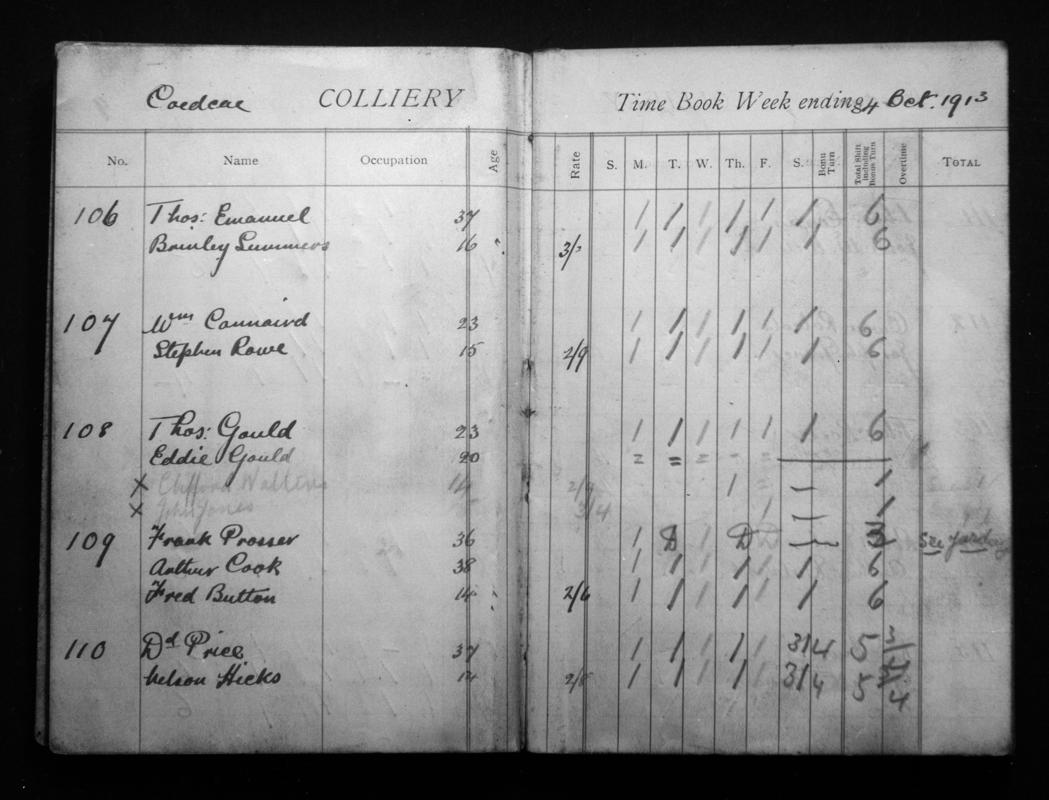 Coedcae COLLIERY Time Book Week ending 4 Oct. 1913
No. Name Occupation Age Rate S. M. T. W. Th. F. S. Bonu Turn Total Shift including Bonus Turn Overtime TOTAL
106 Thos: Emanuel 37 1 1 1 1 1 1 6
Brinley Summers 16 3/- 1 1 1 1 1 1 6
107 Wm Connaird 23 1 1 1 1 1 1 6
Stephen Rowe 15 2/9 1 1 1 1 1 1 6
108 Thos: Gould 23 1 1 1 1 1 1 6
Eddie Gould 20 = = = - =
x Clifford Walters 14 1 = — 1
x John Jones 3/4 1 1 1
109 Frank Prosser 36 1 D 1 D 1 3 See yardage
Arthur Cook 38 1 1 1 1 1 1 6
Fred Button 14 2/6 1 1 1 1 1 1 6
110 Dd Price 37 1 1 1 1 1 3/4 5
Nelson Hicks 14 1 1 1 1 1 3/4 5